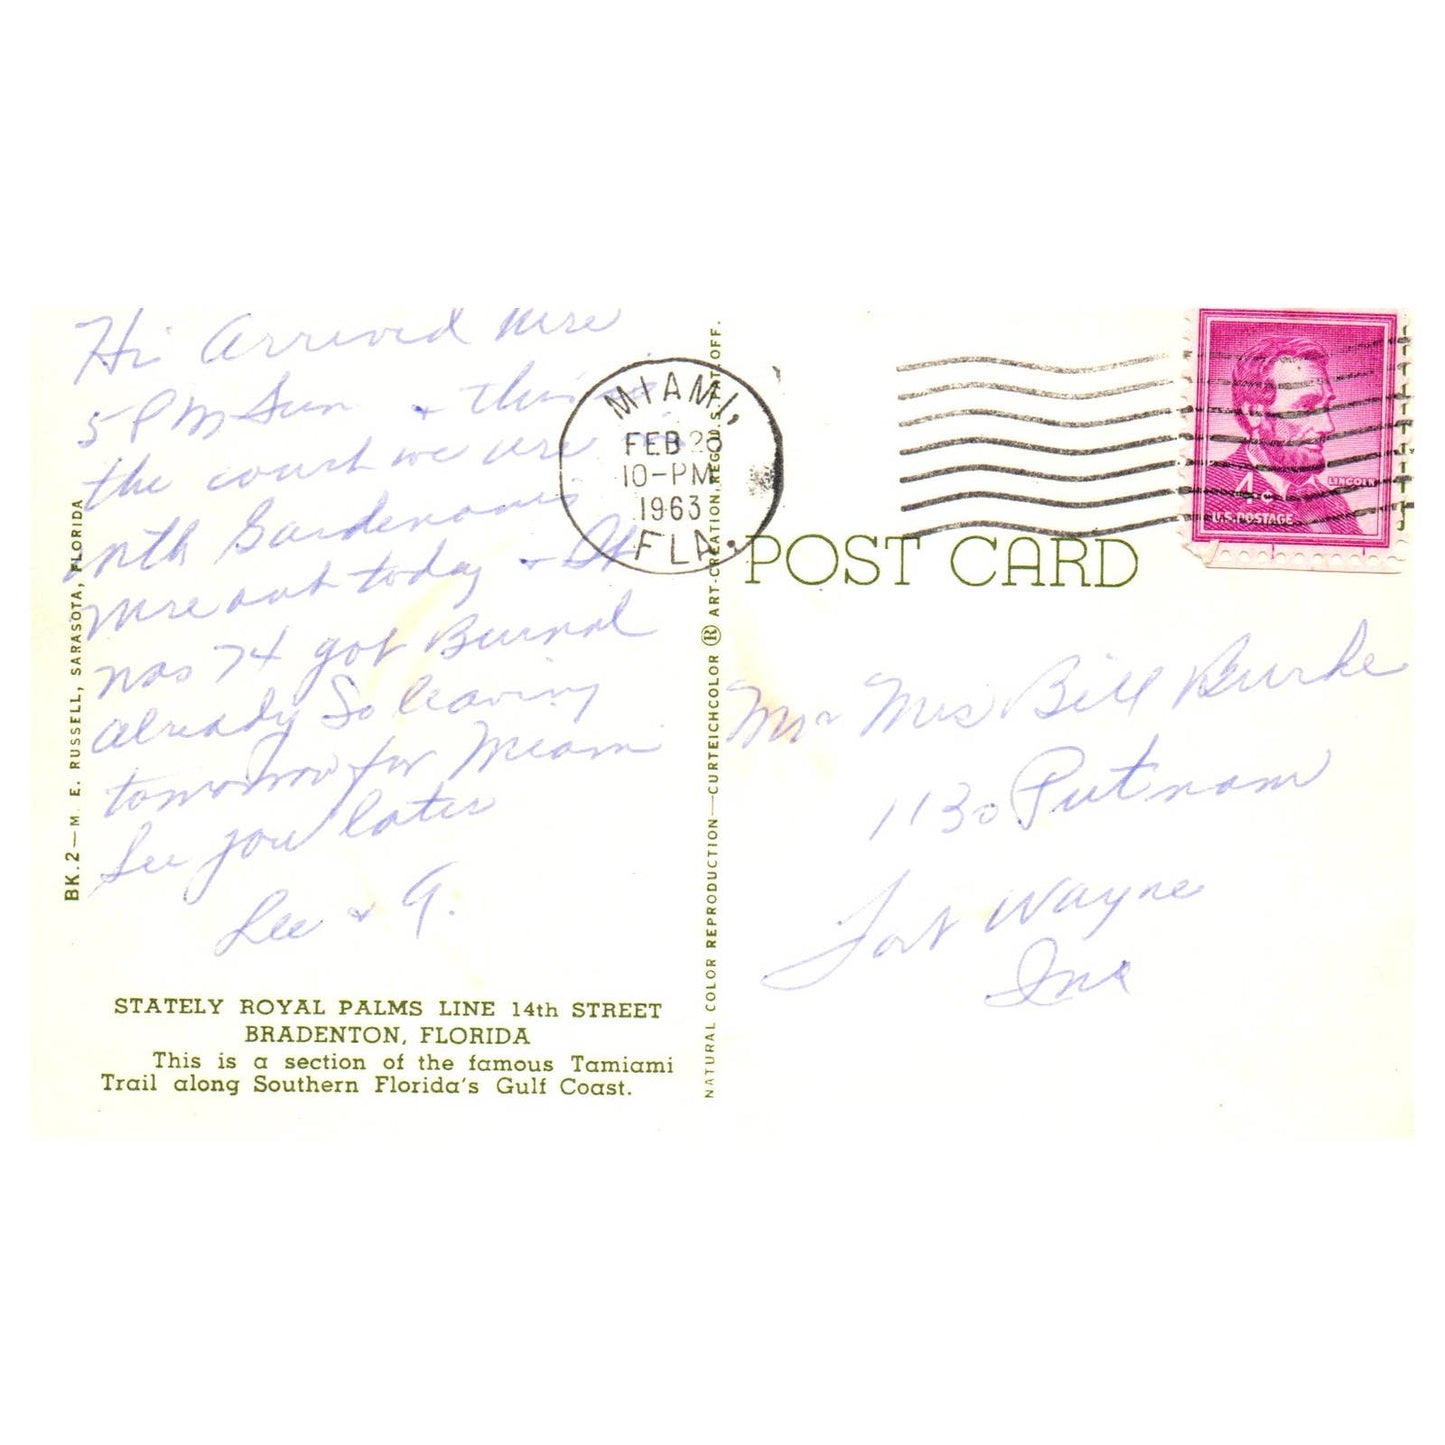 Hi Arrived here
5 PM Sun + this is
the court we are in
nth Bardenown
Were out today + It
was 74 got Burnd
already So leaving
tomorrow for Miami
See you later
Lee + G.
STATELY ROYAL PALMS LINE 14th STREET
BRADENTON, FLORIDA
This is a section of the famous Tamiami
Trail along Southern Florida's Gulf Coast.
BK.2—M. E. RUSSELL, SARASOTA, FLORIDA
NATURAL COLOR REPRODUCTION—CURTEICHCOLOR ® ART-CREATION, REG. U.S. PAT. OFF.
MIAMI,
FEB 28
10-PM
1963
FLA.
LINCOLN
4¢
U.S. POSTAGE
POST CARD
Mr Mrs Bill Burke
1130 Putnam
Fort Wayne
Ind